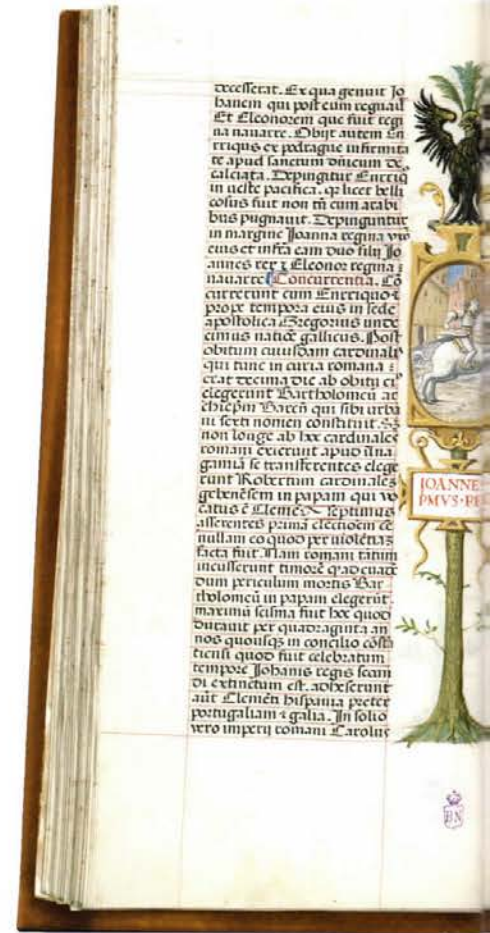 decesserat. Ex qua genuit Jo
hanem qui post eum regnauit
Et Eleonorem que fuit regi
na nauarre. Obijt autem En
rriqus ex podrague infirmita
te apud sanctum dñicum de
calciata. Depingitur Enrriq
in ueste pacifica. qz licet belli
cosus fuit non tñ cum arabi
bus pugnauit. Depinguntur
in margine Joanna regina
eius et infra eam duo filij Jo
annes rex ⁊ Eleonor regina
nauarre Concurrentia. Cõ
currerunt cum Enrriquo ⁊
prope tempora eius in sede
apostolica Gregorius unde
cimus natiõe gallicus. Post
obitum cuiusdam cardinalis
qui tunc in curia romana
erat decima die ab obitu
elegerunt Bartholomeũ ar
chiepm Bareñ qui sibi urba
ni sexti nomen constituit. Sz
non longe ab hoc cardinales
romani exierunt apud
se transferentes elege
runt Robertum cardinalez
gebenẽsem in papam qui vo
catus ẽ Clemẽs septimus
asserentes primã electioẽm
nullam eo quod per uiolẽtiaz
facta fuit. Nam romani tãtum
incusserunt timorẽ
dum periculum mortis Bar
tholomeũ in papam elegerũt.
maximũ scisma fuit hoc quod
durauit per quadraginta an
nos quousqz in concilio cõstã
tiensi quod fuit celebratum
tempore Johanis regis secun
di extinctum est. adheserunt
aũt Clemẽti hispania preter
portugaliam ⁊ galia. In solio
vero imperij romani Carolus
JOANNE
PMVS·
BN